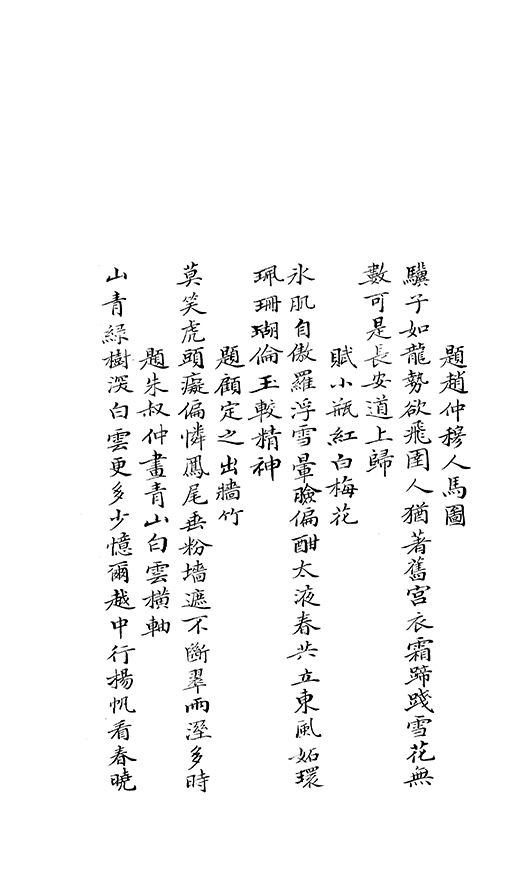 題趙仲穆人馬圖
驥子如龍勢欲飛圉人猶著舊宮衣霜蹄踐雪花無
數可是長安道上歸
賦小瓶紅白梅花
氷肌自傲羅浮雪暈臉偏酣太液春共立東風妬環
珮珊瑚倫玉較精神
題顧定之出牆竹
莫笑虎頭癡偏憐鳳尾垂粉墻遮不斷翠雨溼多時
題朱叔仲畫青山白雲橫軸
山青綠樹深白雲更多少憶爾越中行楊帆看春曉